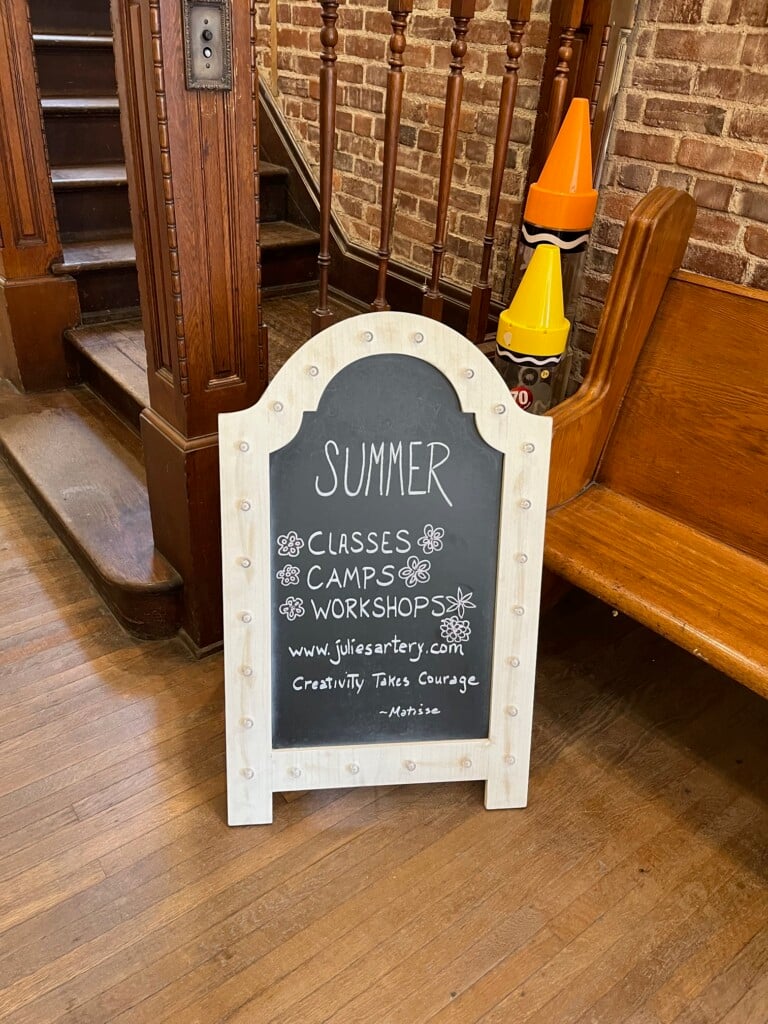 SUMMER
CLASSES
CAMPS
WORKSHOPS
www.juliesartery.com
Creativity Takes Courage
~Matisse
70